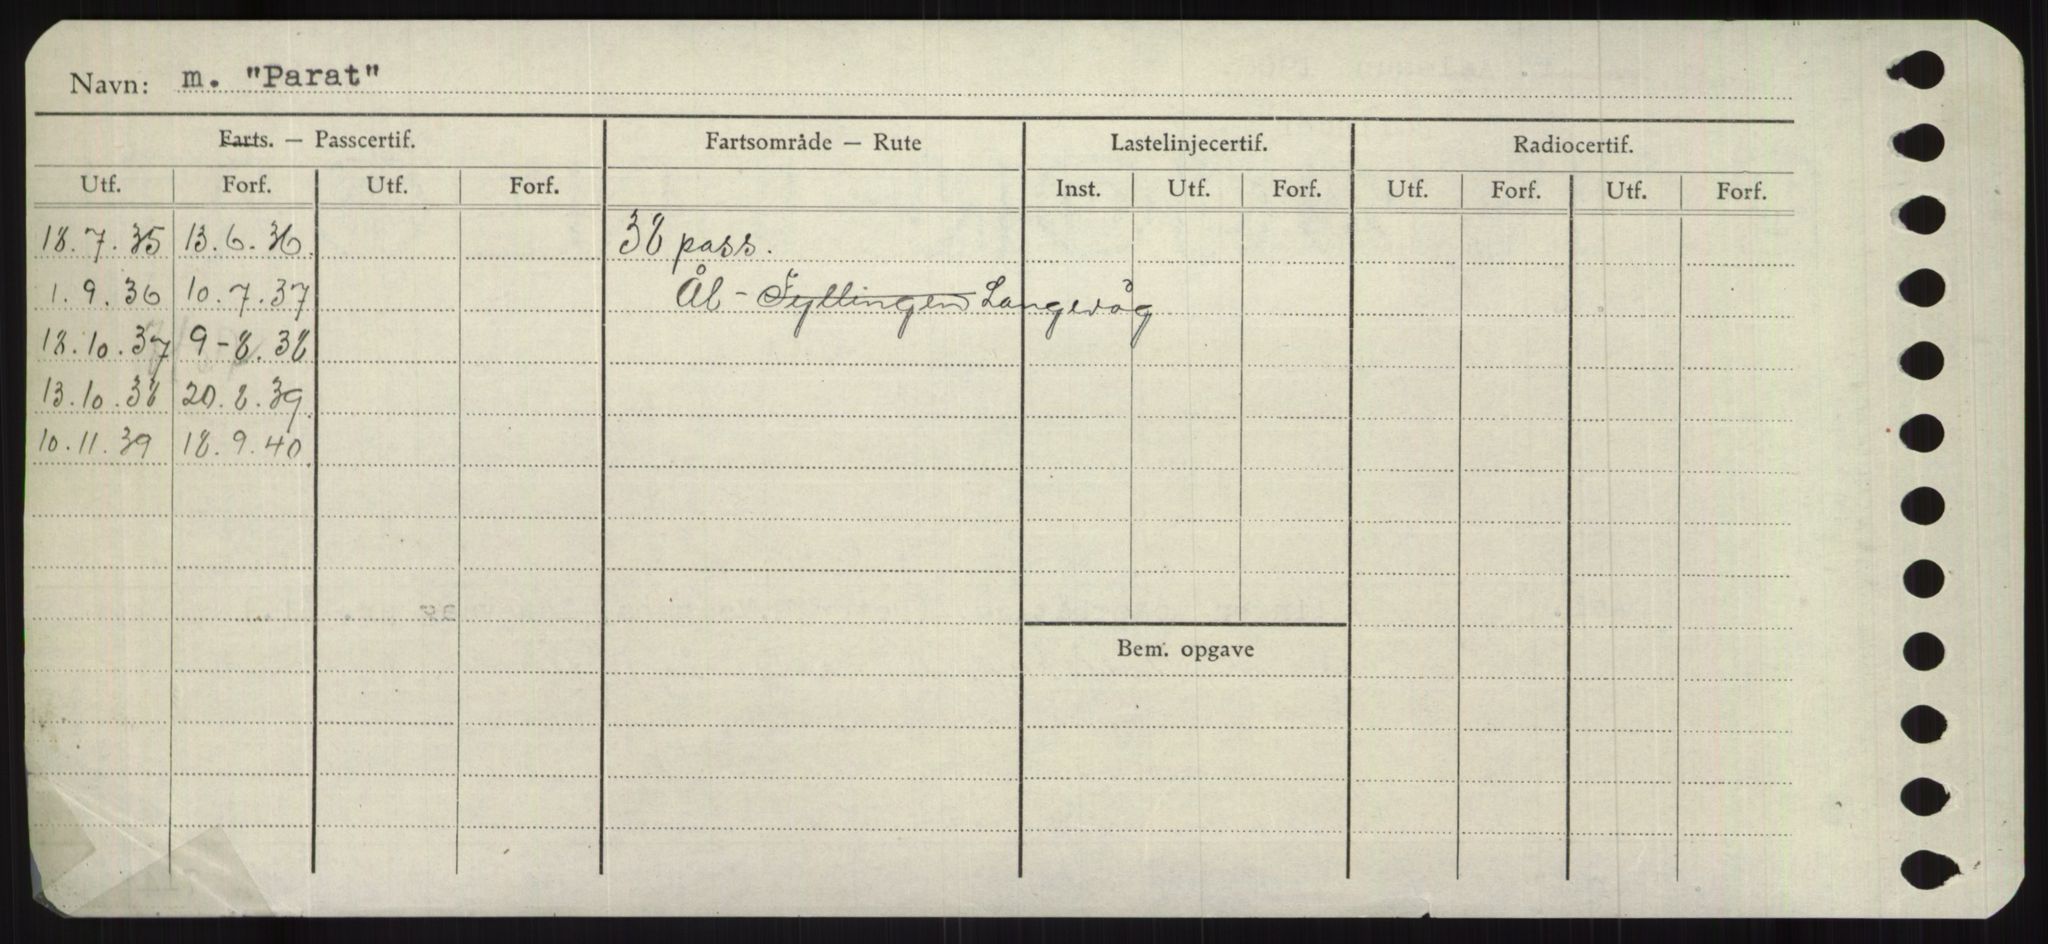 Navn: m. "Parat"
Farts. — Passcertif. Fartsområde — Rute Lastelinjecertif. Radiocertif.
Utf. Forf. Utf. Forf. Inst. Utf. Forf. Utf. Forf. Utf. Forf.
18.7.35 13.6.36 38 pass.
1.9.36 10.7.37 Ål - Fyllingen Langevåg
18.10.37 9-8.38
13.10.38 20.8.39
10.11.39 18.9.40
Bem. opgave